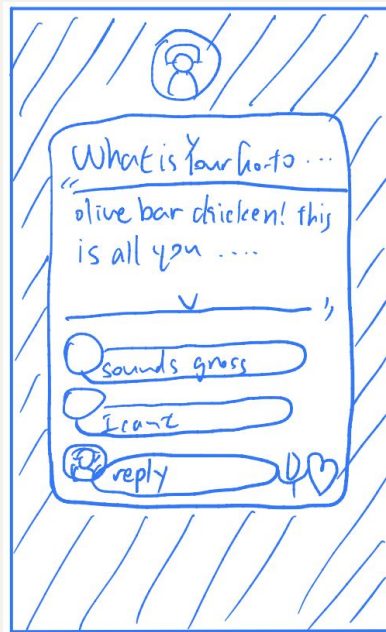 What is Your Go-to ...
"
olive bar chicken! this
is all you ....
"
sounds gross
I cant
reply